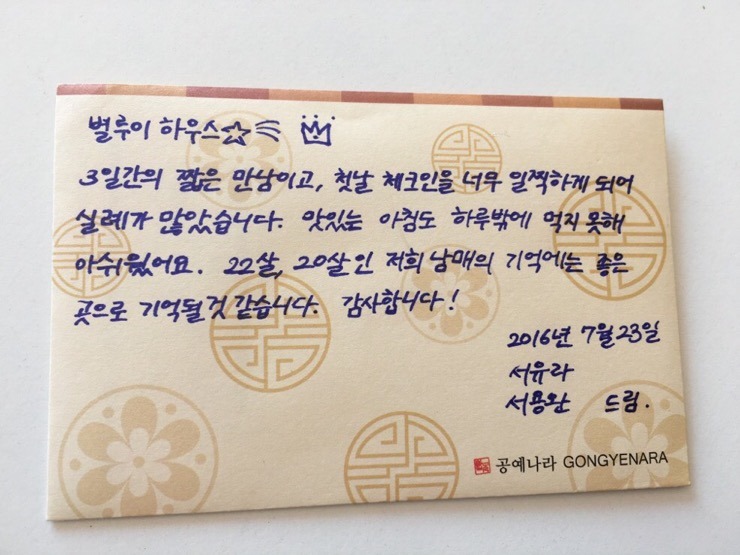 별루이 하우스
3일간의 짧은 만남이고, 첫날 체크인을 너무 일찍하게 되어
실례가 많았습니다. 맛있는 아침도 하루밖에 먹지 못해
아쉬웠어요. 22살, 20살인 저희 남매의 기억에는 좋은
곳으로 기억될 것 같습니다. 감사합니다!
2016년 7월 23일
서유라
서용완 드림.
공예나라 GONGYENARA